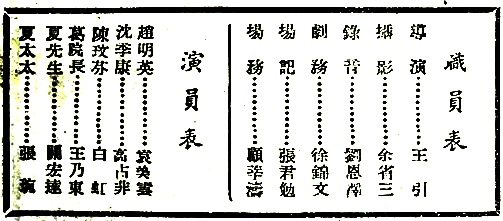 職員表
導演………王引
攝影………余省三
錄音………劉恩澤
劇務………徐錦文
場記………張君勉
場務………顧莘濤
演員表
趙明英………袁美雲
沈李康………高占非
陳玟芬………白虹
葛院長………王乃東
夏先生………關宏達
夏太太………張